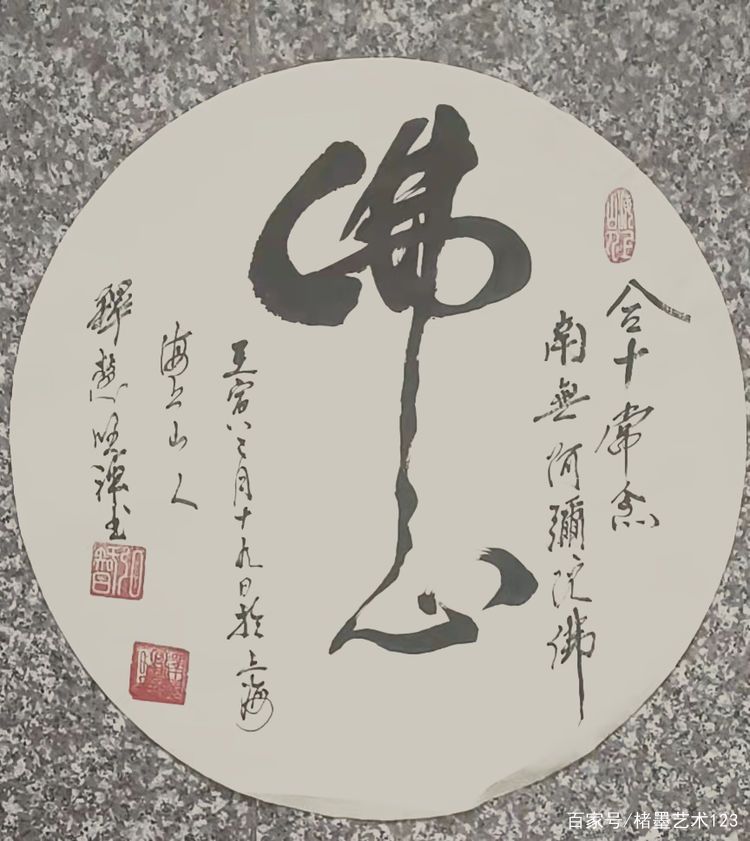 合十常念
南無阿彌陀佛
佛心
壬寅月十九日於上海
海上山人
釋慧明禪書
百家号/楮墨艺术123